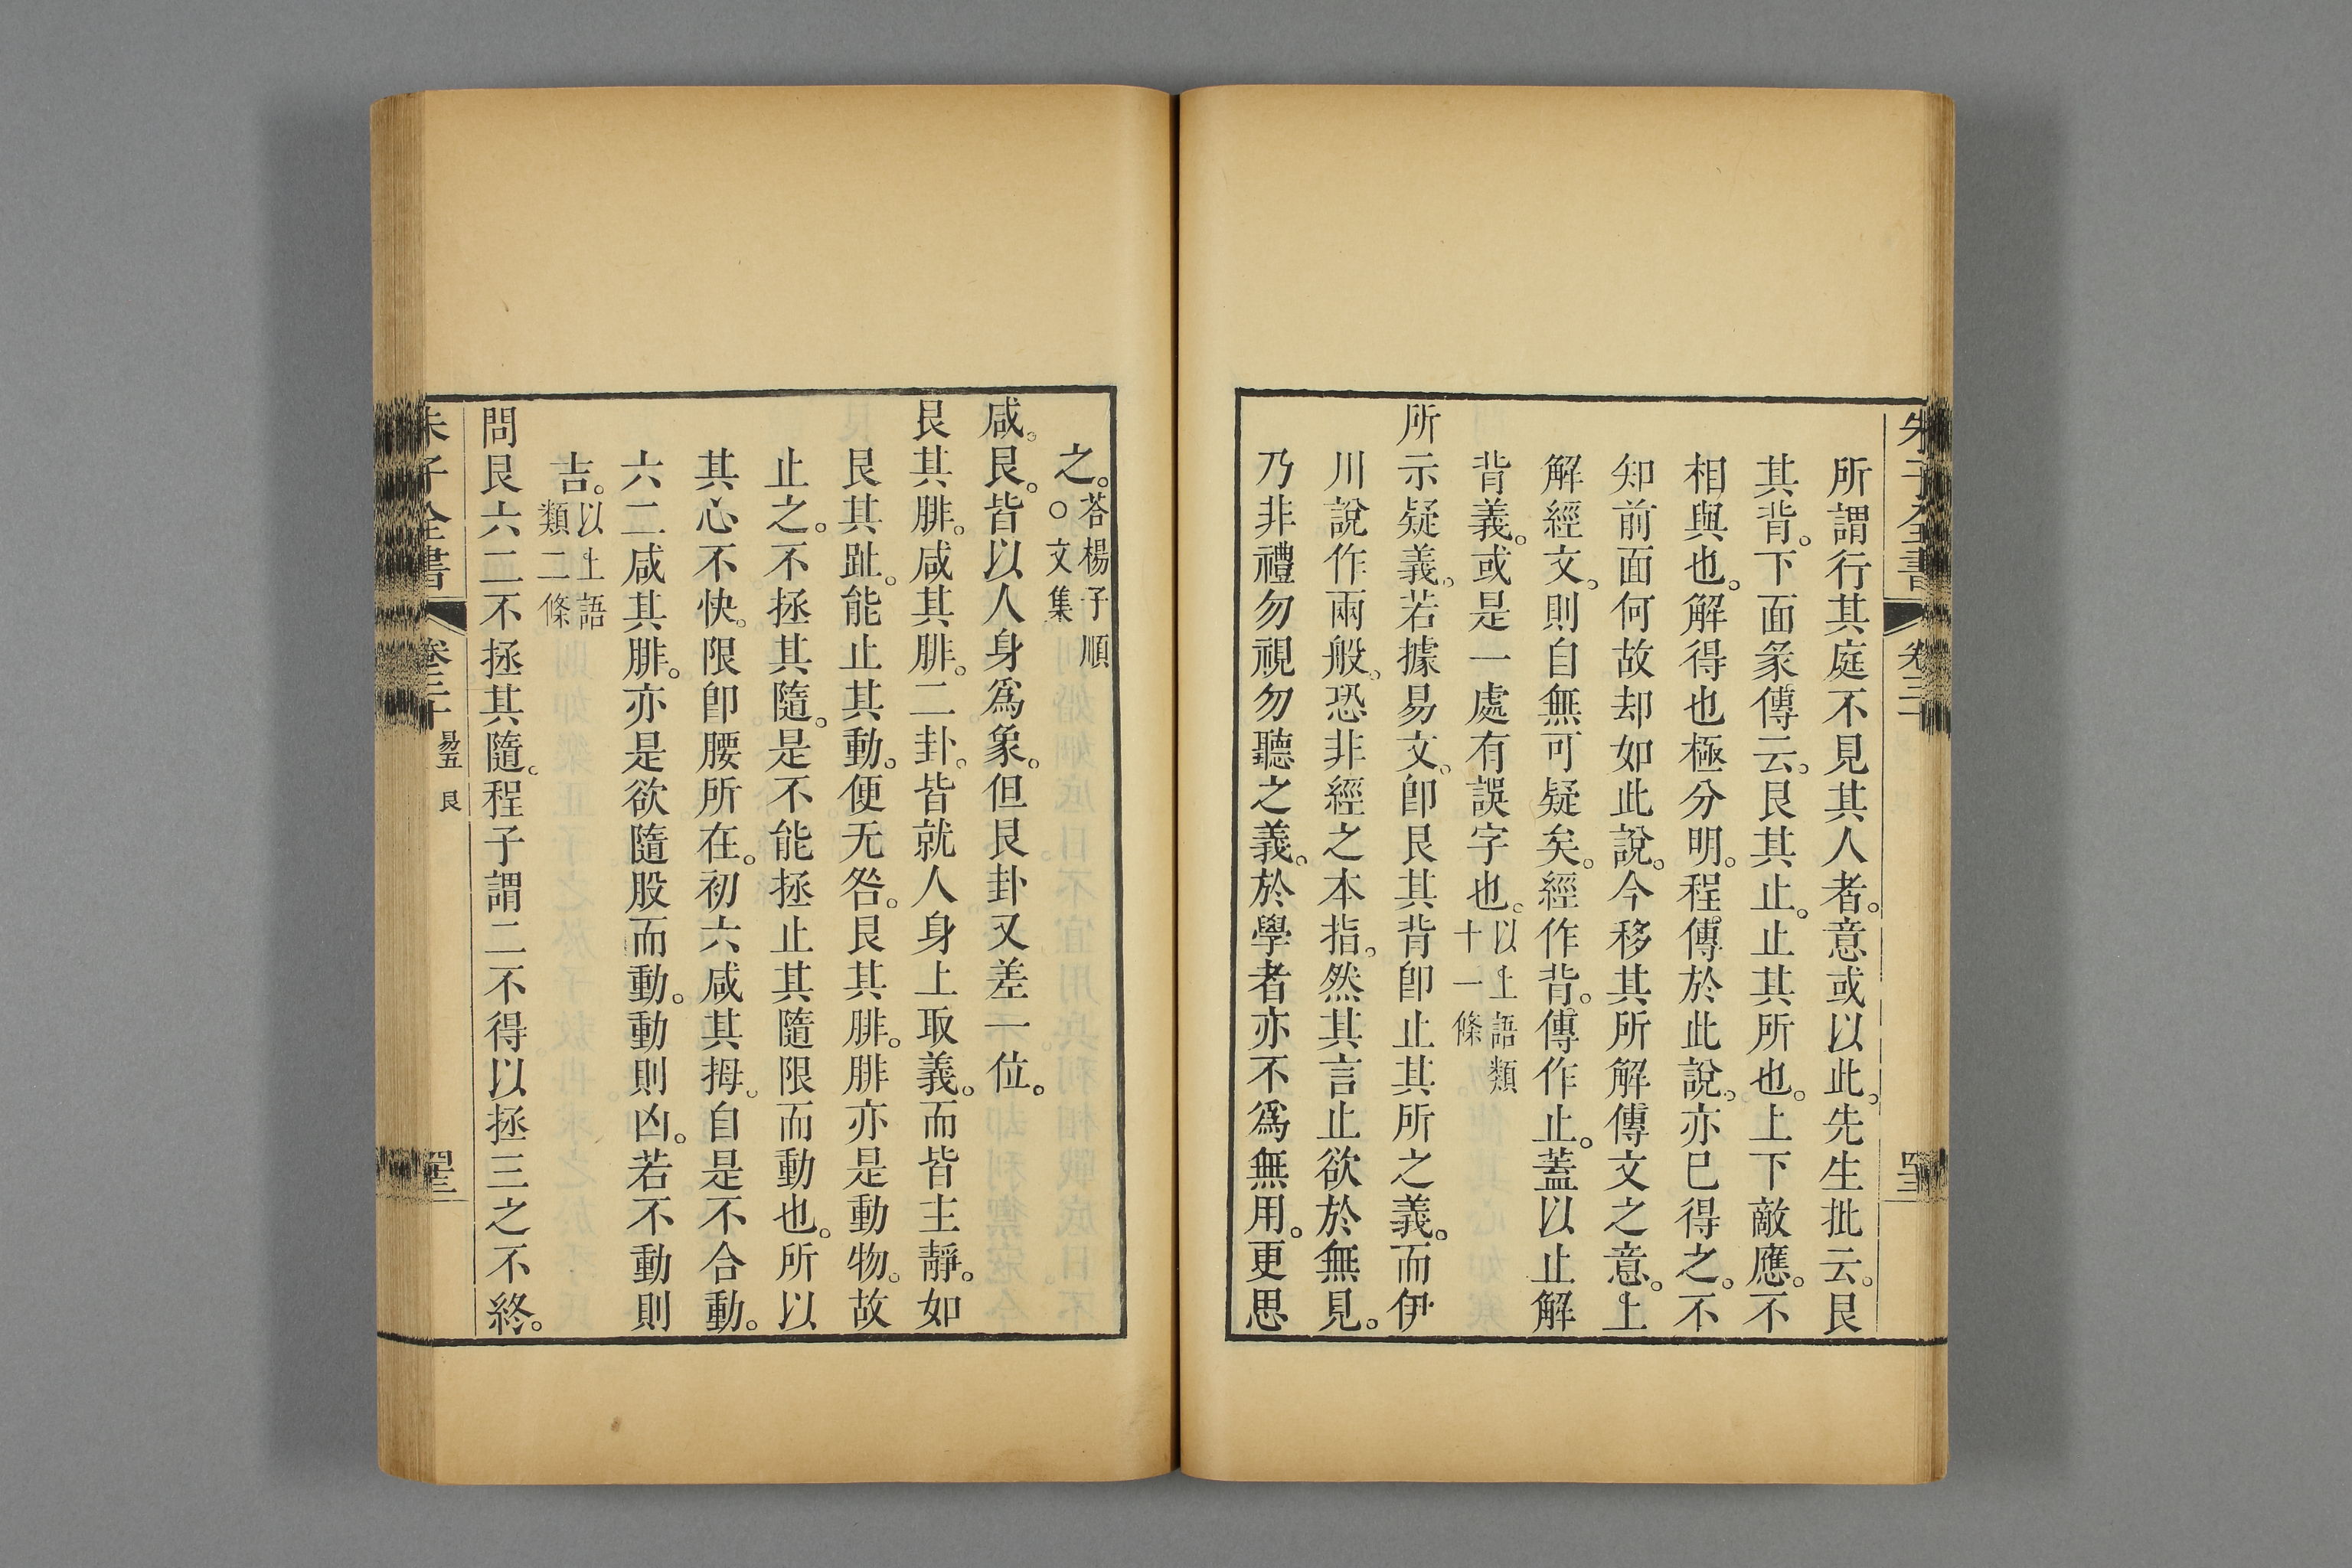 所謂行其庭不見其人者。意或以此。先生批云。艮
其背。下面彖傳云。艮其止。止其所也。上下敵應。不
相與也。解得也極分明。程傳於此說。亦已得之。不
知前面何故却如此說。今移其所解傳文之意。上
解經文。則自無可疑矣。經作背。傳作止。蓋以止解
背義。或是一處有誤字也。以上語類十一條
所示疑義。若據易文。卽艮其背卽止其所之義。而伊
川說作兩般。恐非經之本指。然其言止欲於無見。
乃非禮勿視勿聽之義。於學者亦不爲無用。更思
之。○答楊子順文集
咸。艮。皆以人身爲象。但艮卦又差一位。
艮其腓。咸其腓。二卦。皆就人身上取義。而皆主靜。如
艮其趾。能止其動。便无咎。艮其腓。腓亦是動物。故
止之。不拯其隨。是不能拯止其隨限而動也。所以
其心不快。限卽腰所在。初六咸其拇。自是不合動。
六二咸其腓。亦是欲隨股而動。動則凶。若不動則
吉。以上語類二條
問艮六二不拯其隨。程子謂二不得以拯三之不終。
朱子全書 易五 艮